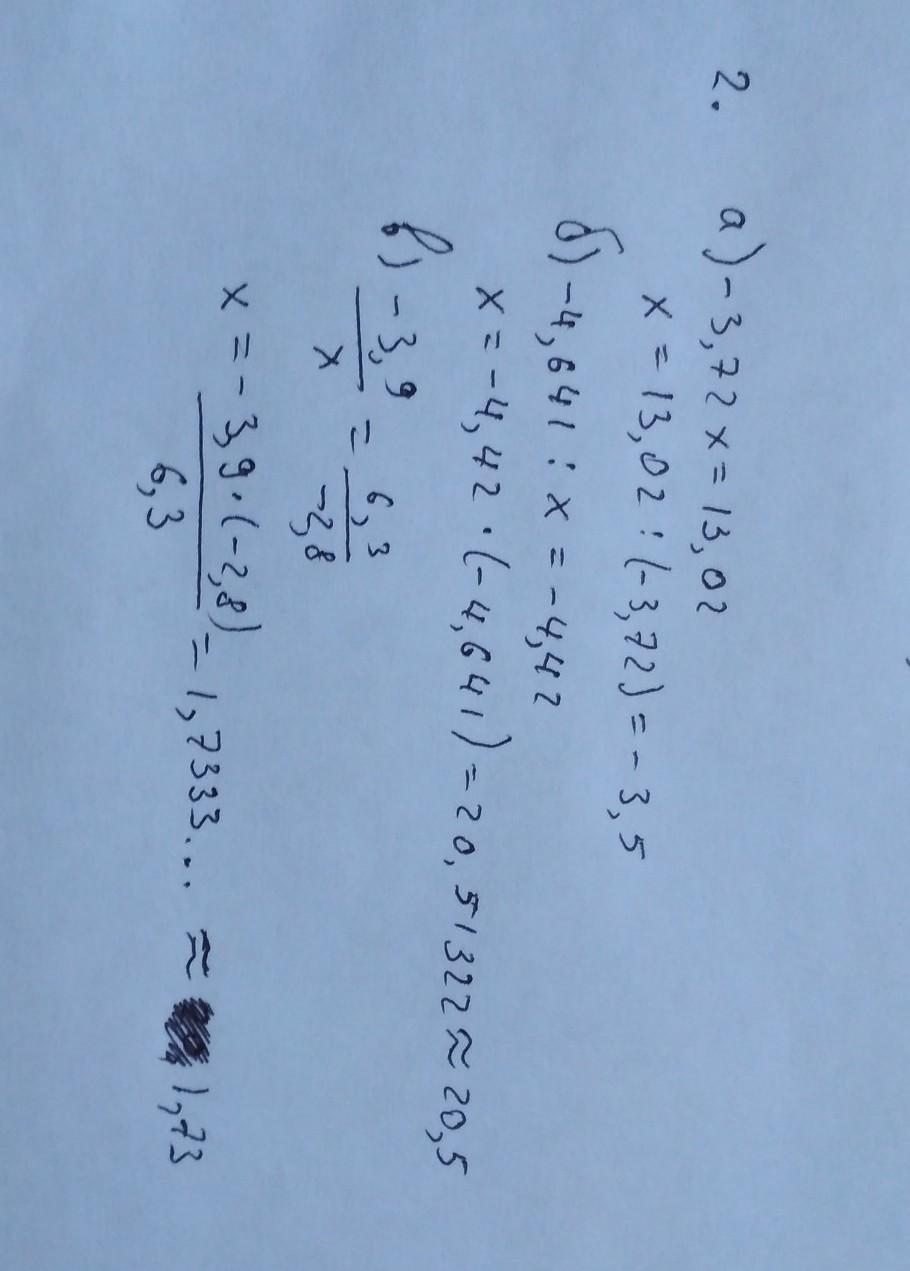 2. а) -3,72x = 13,02
x = 13,02 : (-3,72) = -3,5
б) -4,641 : x = -4,42
x = -4,42 · (-4,641) = 20,51322 ≈ 20,5
в) -3,9/x = 6,3/-2,8
x = -3,9·(-2,8)/6,3 = 1,7333... ≈ 1,73